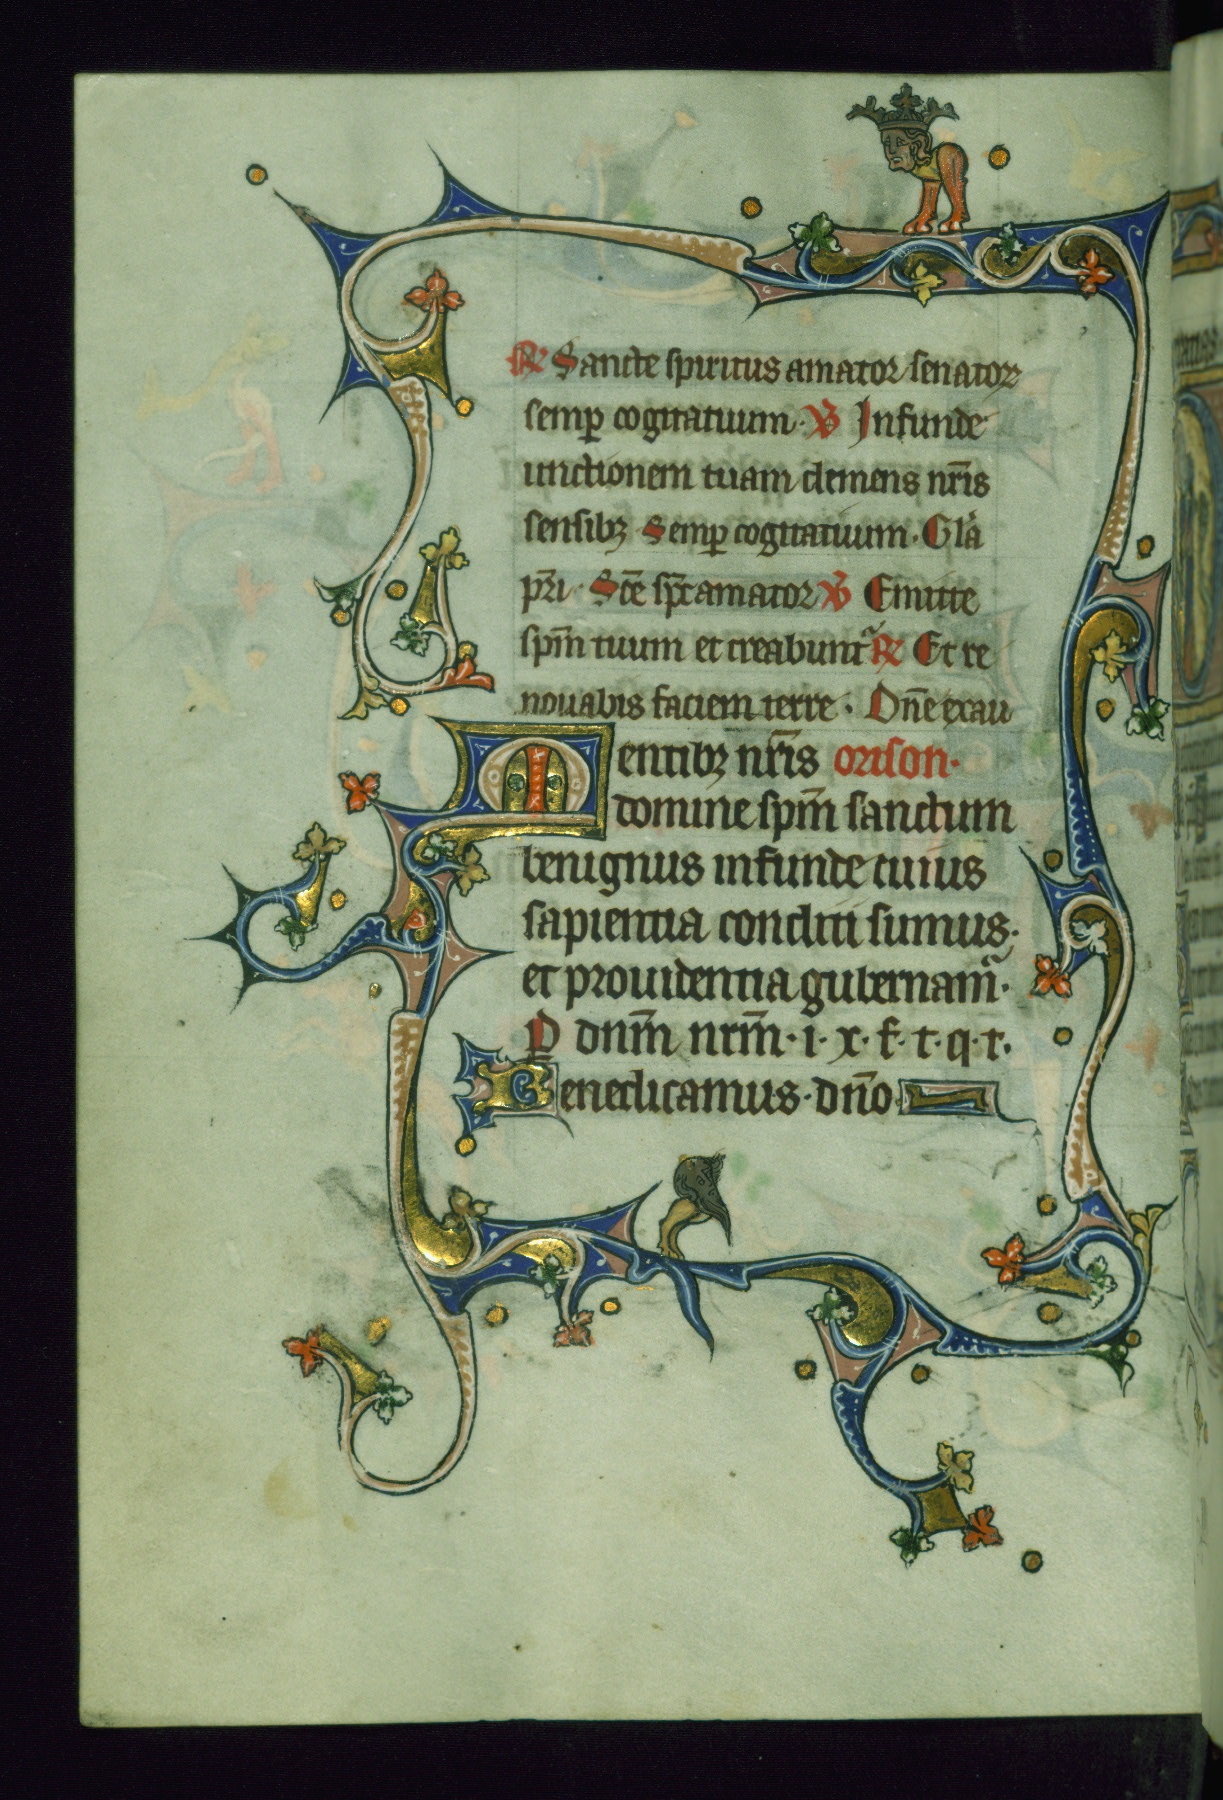 R Sancte spiritus amator senator
semp cogitatuum. V Infunde
unctionem tuam clemens nr̄is
sensibꝫ Semp cogitatuum. Gl̄a
pr̄i. Sc̄e sp̄c amator V Emitte
sp̄m tuum et creabunt᷑ R Et re
nouabis faciem terre. Dn̄e exau
Mentibꝫ nr̄is orison.
domine sp̄m sanctum
benignus infunde cuius
sapientia conditi sumus.
et prouidentia gubernam᷑.
P dn̄m nrm̄. i. x. f. t. q. r.
Benedicamus. dn̄o.